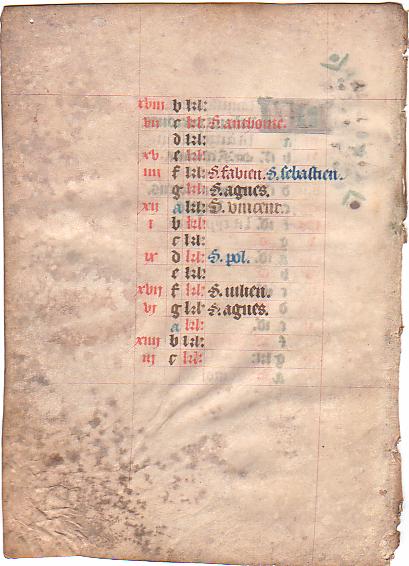 xviii b kl:
vii c kl: S. anthoine.
d kl:
xv e kl:
iiii f kl: S. fabien. S. sebastien.
g kl: S. agnes.
xii a kl: S. vincent.
i b kl:
c kl:
ix d kl: S. pol.
e kl:
xvii f kl: S. iulien.
vi g kl: S. agnes.
a kl:
xiiii b kl:
iii c kl: